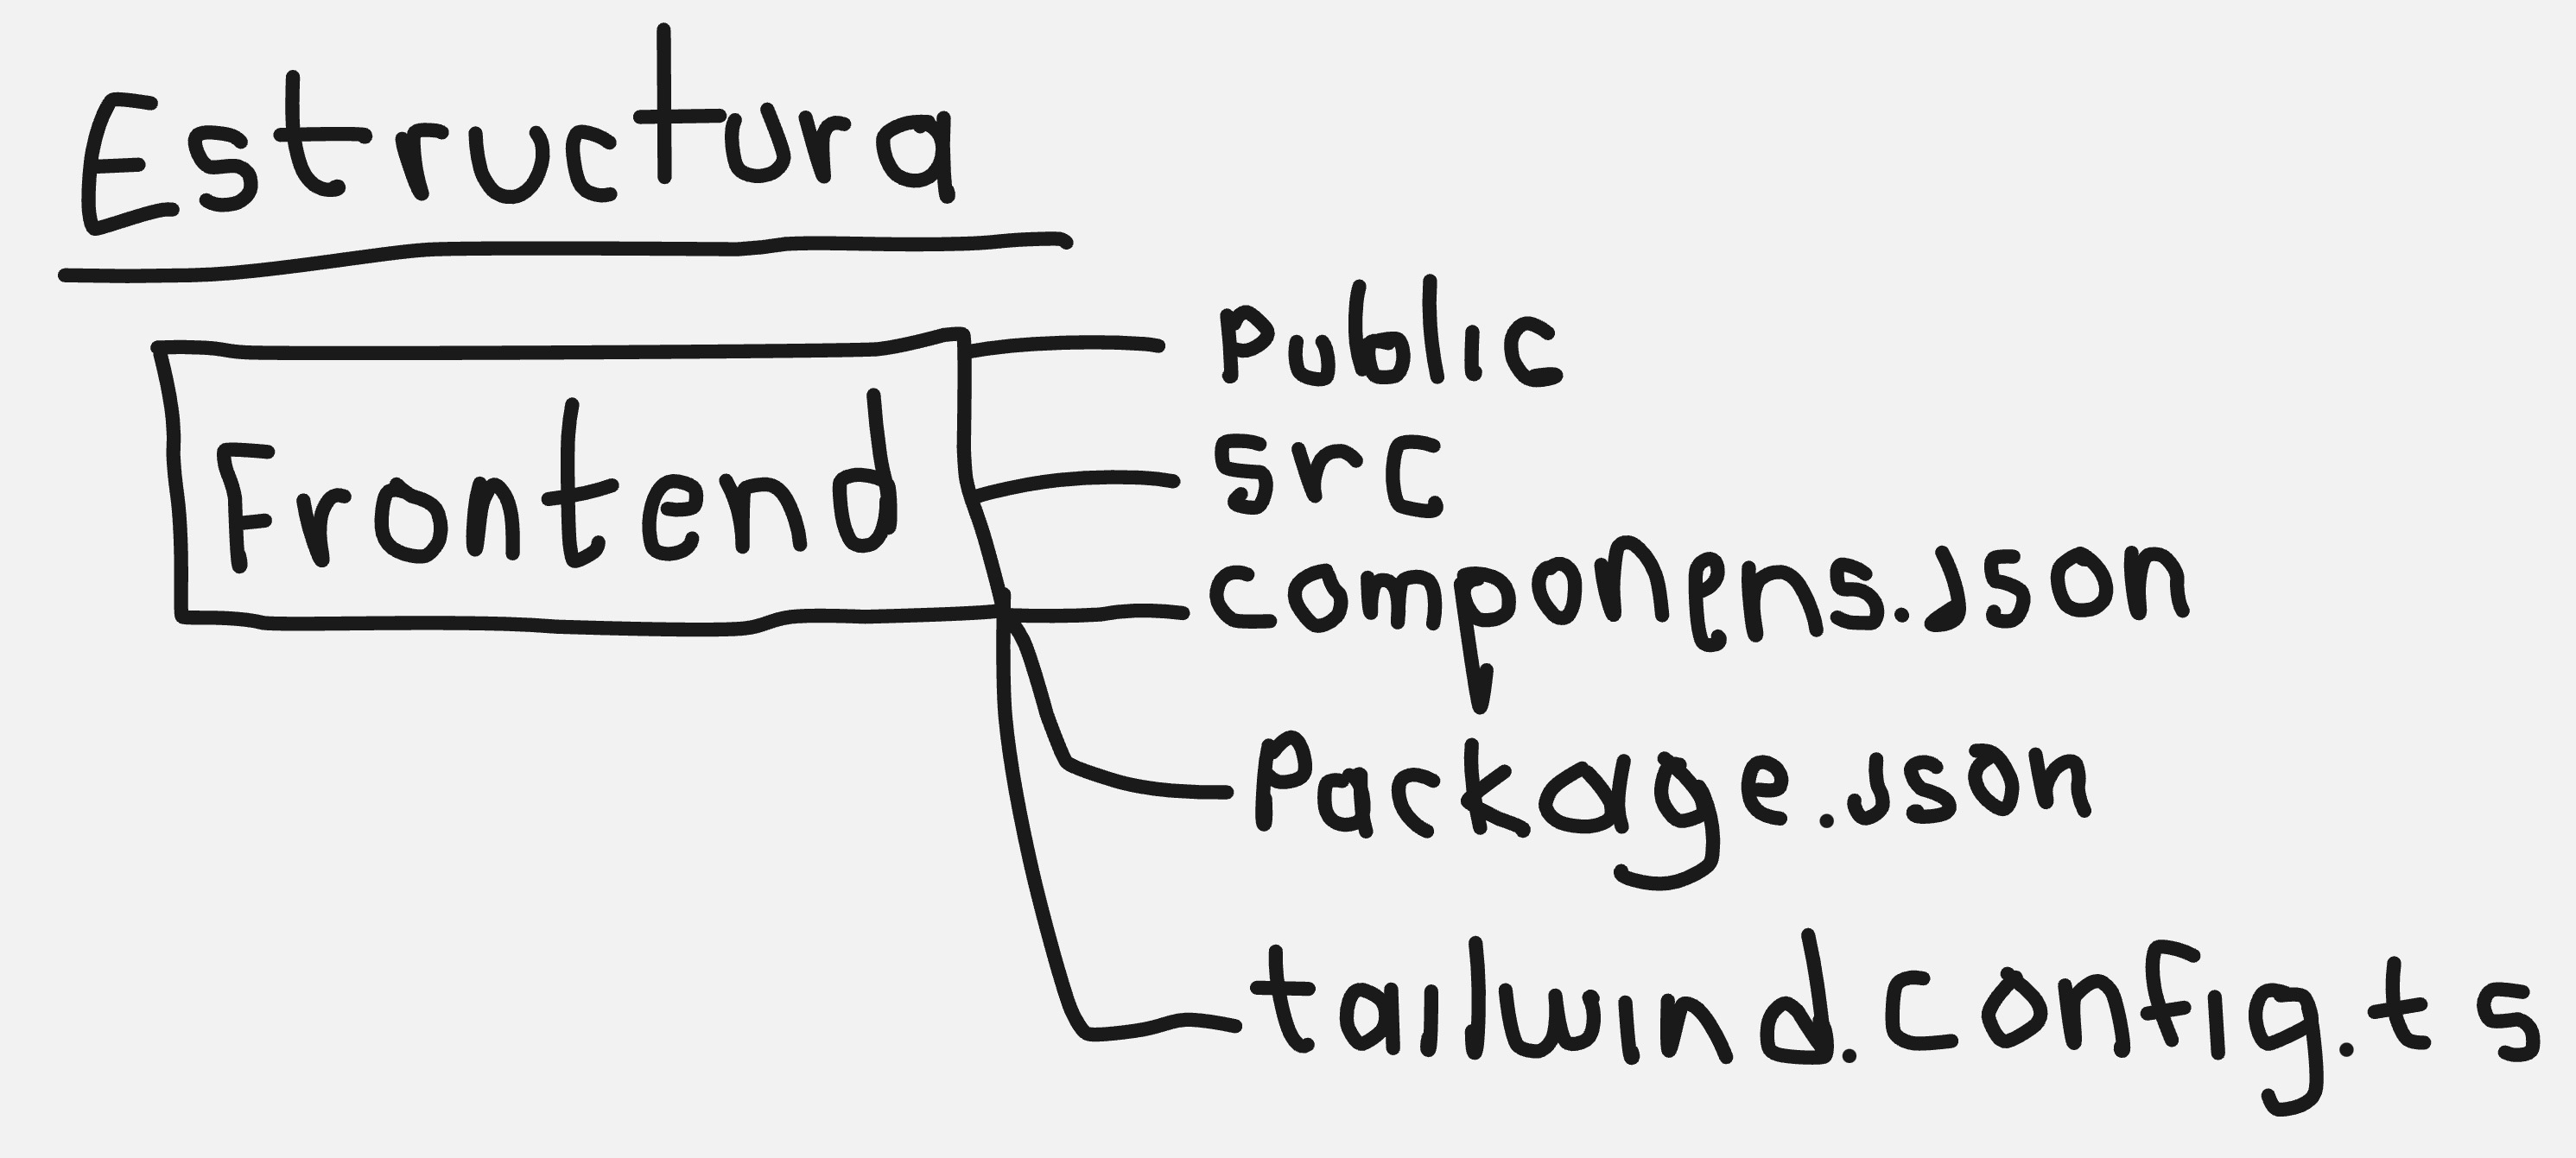 Estructura
Frontend
Public
src
componens.json
Package.json
tailwind.config.ts